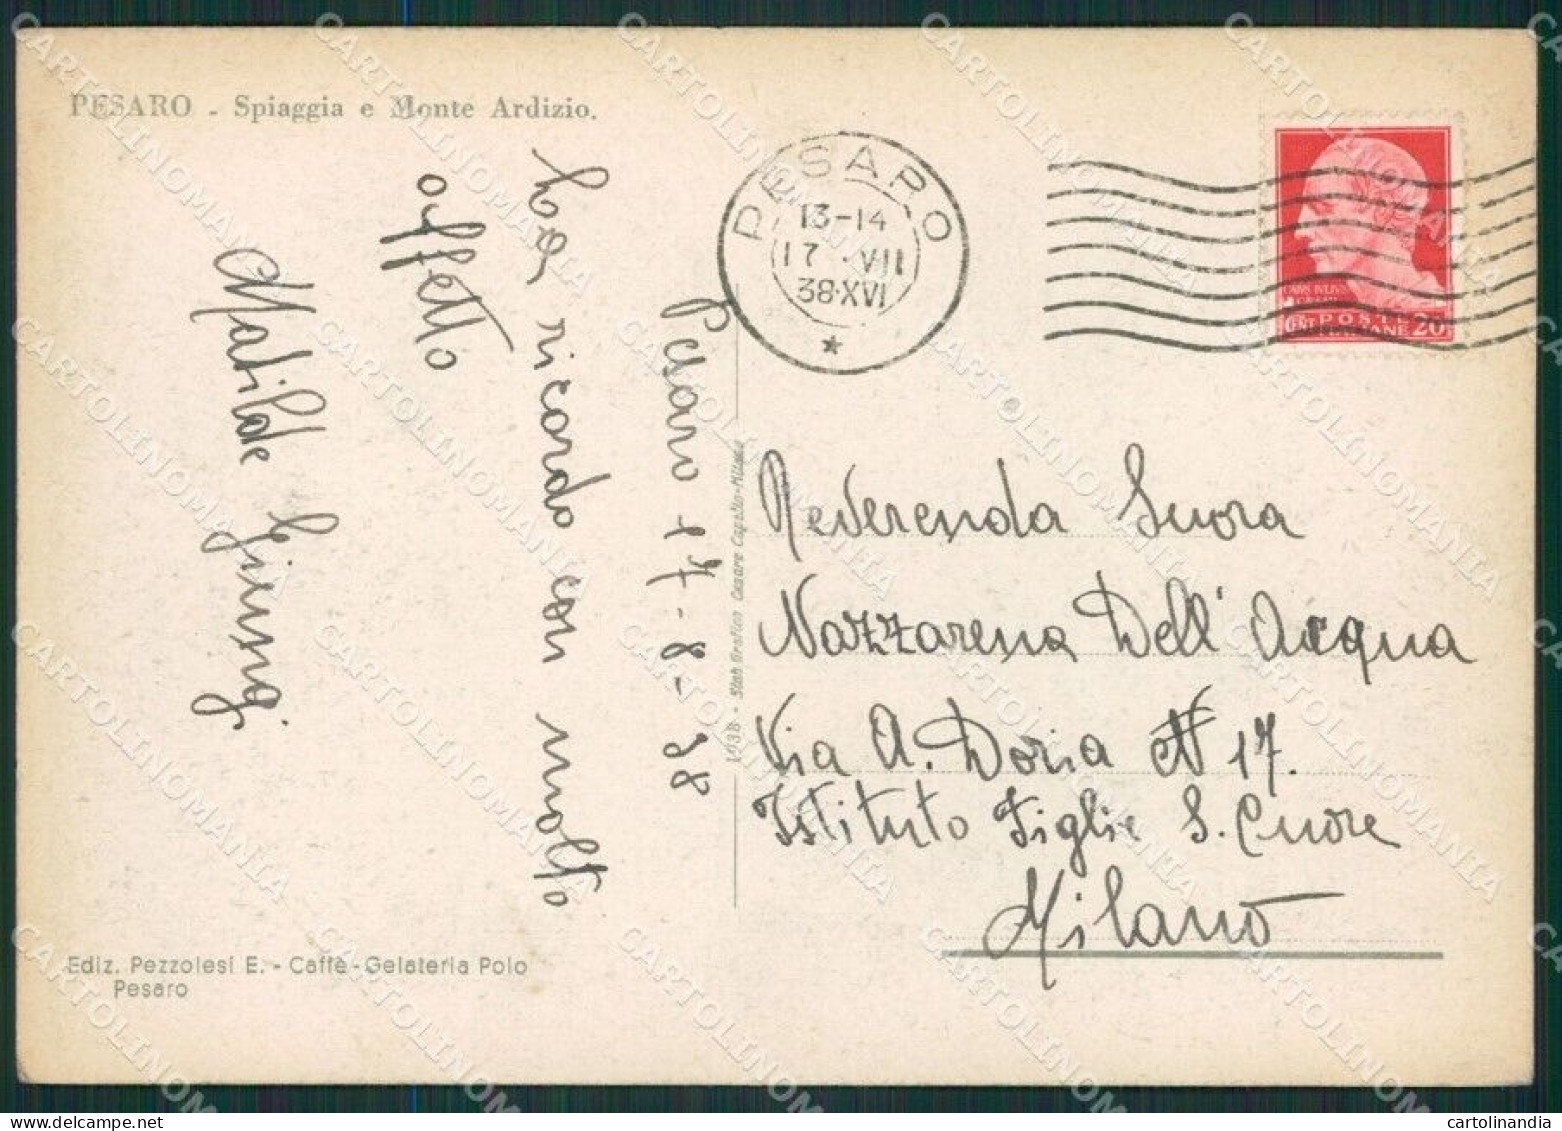 PESARO - Spiaggia e Monte Ardizio.
Pesaro 17-8-38
La ricordo con molto
affetto
Matilde
PESARO
13-14
17 · VII
38·XVI
POSTE
CENT 20
Reverenda Suora
Nazzarena Dell'Acqua
Via A. Doria N 17.
Istituto Figlie S. Cuore
Milano
1938 - Stab Grafico Cesare Capello-Milano
Ediz. Pezzolesi E. - Caffè-Gelateria Polo
Pesaro
CARTOLINOMANIA
cartolinandia